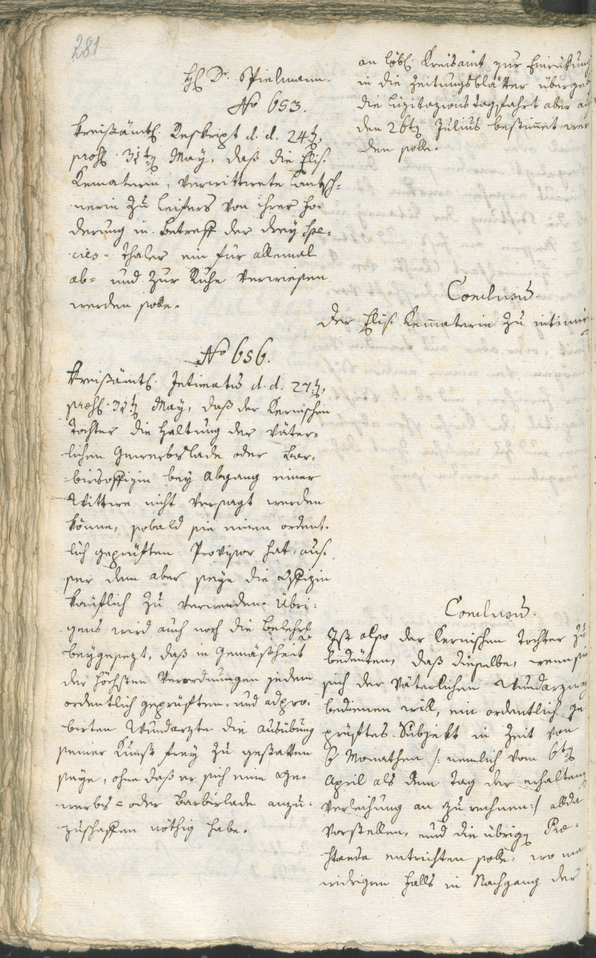 281
H. Dr. Spielmann.
No 653.
Kreisämtl. Reskript d. d. 24t,
prßl. 31t May, daß die Elis.
Kematerin, verwittwete Lantsch-
nerin zu Leifers von ihrer Fo-
derung in Betreff der drey Spe-
cies-Thaler ein für allemal
ab- und zur Ruhe verwiesen
werden solle.
No 656.
Kreisämtl. Intimatum d. d. 27t,
prßl. 31t May, daß der Kernischen
Tochter die Haltung der väter-
lichen Gewerbslade oder Bar-
biersoffizin bey Abgang einer
Wittwe nicht versagt werden
könne, sobald sie einen ordent-
lich geprüften Provisor hat, auß-
ser dem aber seye die Offizin
käuflich zu verwenden. Übri-
gens wird auch noch die Belehr.
beygesezt, daß in Gemäßheit
der höchsten Verordnungen jedem
ordentlich geprüften, und adpro-
birten Wundarzte die Ausübung
seiner Kunst frey zu gestatten
seye, ohne daß er sich eine Ge-
werbs- oder Barbierlade anzu-
zuschaffen nöthig habe.
an löbl. Kreisamt zur Einrückung
in die Zeitungsblätter überge
die Lizitazionstagsfahrt aber auf
den 26t Julius bestimmet wer
den solle.
Conclusum
Der Elis. Kematerin zu intimir
Conclusum.
Ist also der Kernischen Tochter zu
bedeuten, daß dieselbe, wenn sie
sich der väterlichen Wundarzney
bedienen will, ein ordentlich ge
prüftes Subjekt in Zeit von
6 Monathen /: nemlich vom 6t
April als dem Tag der erhaltenen
Verleihung an zu rechnen :/ allda
vorstellen, und die übrigen Præ-
standa entrichten solle, wo ma
widrigen Falls in Nachgang der